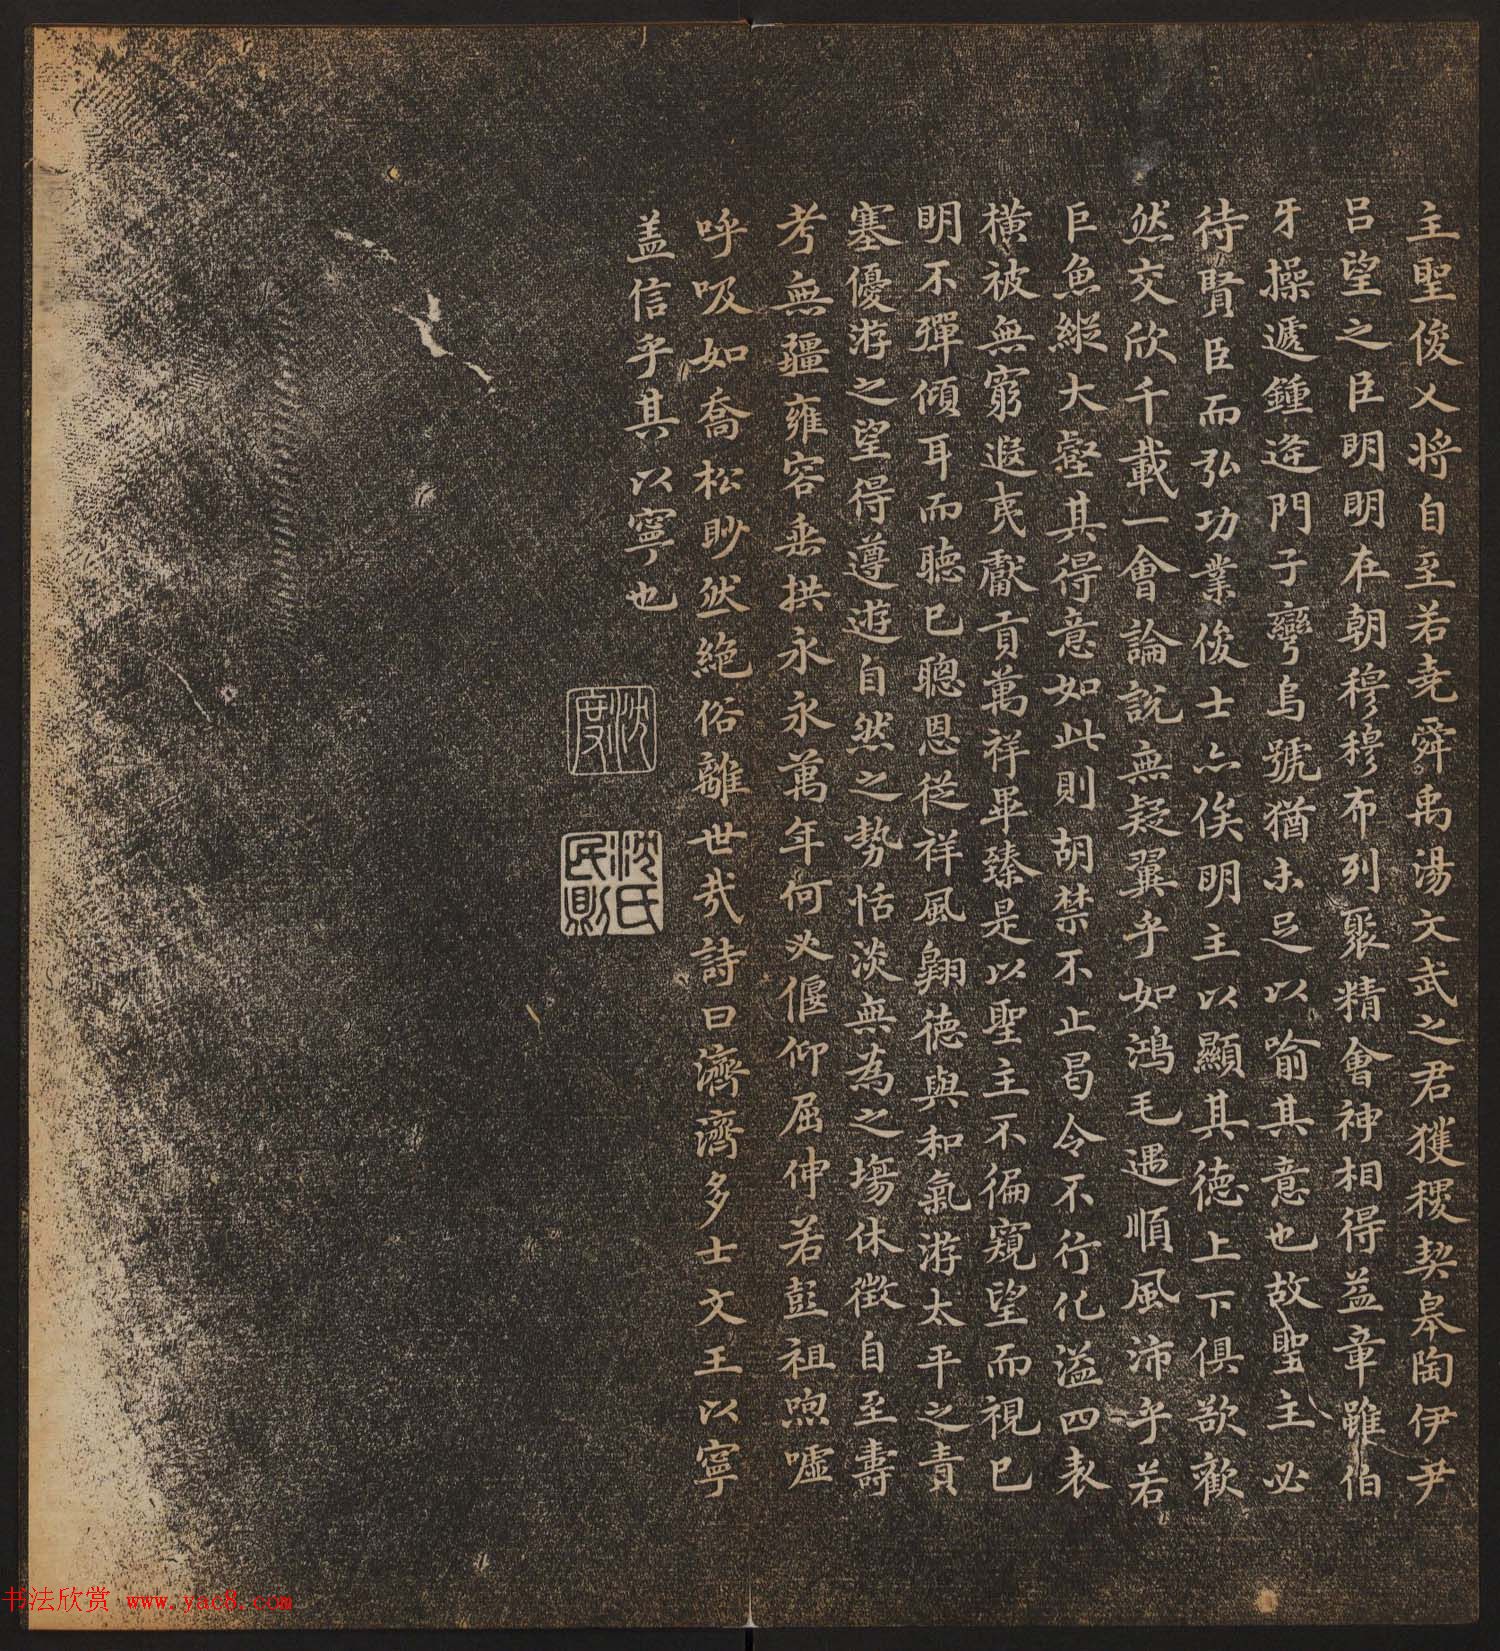 主聖俊乂將自至若堯舜禹湯文武之君獲稷契皋陶伊尹
呂望之臣明明在朝穆穆布列聚精會神相得益章雖伯
牙操遞鍾逄門子彎烏號猶未足以喻其意也故聖主必
待賢臣而弘功業俊士亦俟明主以顯其德上下俱欲歡
然交欣千載一會論說無疑翼乎如鴻毛遇順風沛乎若
巨魚縱大壑其得意如此則胡禁不止曷令不行化溢四表
橫被無窮遐夷獻貢萬祥畢臻是以聖主不徧窺望而視已
明不殫傾耳而聽已聰恩從祥風翱德與和氣游太平之責
塞優游之望得遵遊自然之勢恬淡無為之場休徵自至壽
考無疆雍容垂拱永永萬年何必偃仰屈伸若彭祖呴噓
呼吸如喬松眇然絕俗離世哉詩曰濟濟多士文王以寧
盖信乎其以寧也
沈度
沈氏民則
书法欣赏 www.yac8.com